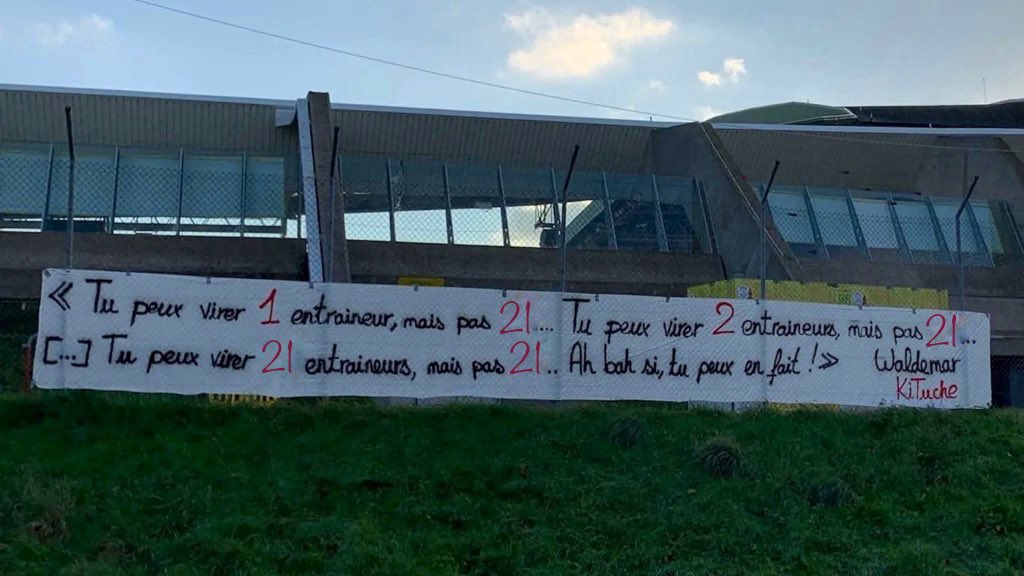 « Tu peux virer 1 entraineur, mais pas 21... Tu peux virer 2 entraineurs, mais pas 21...
[...] Tu peux virer 21 entraineurs, mais pas 21.. Ah bah si, tu peux en fait ! » Waldemar
KiTuche